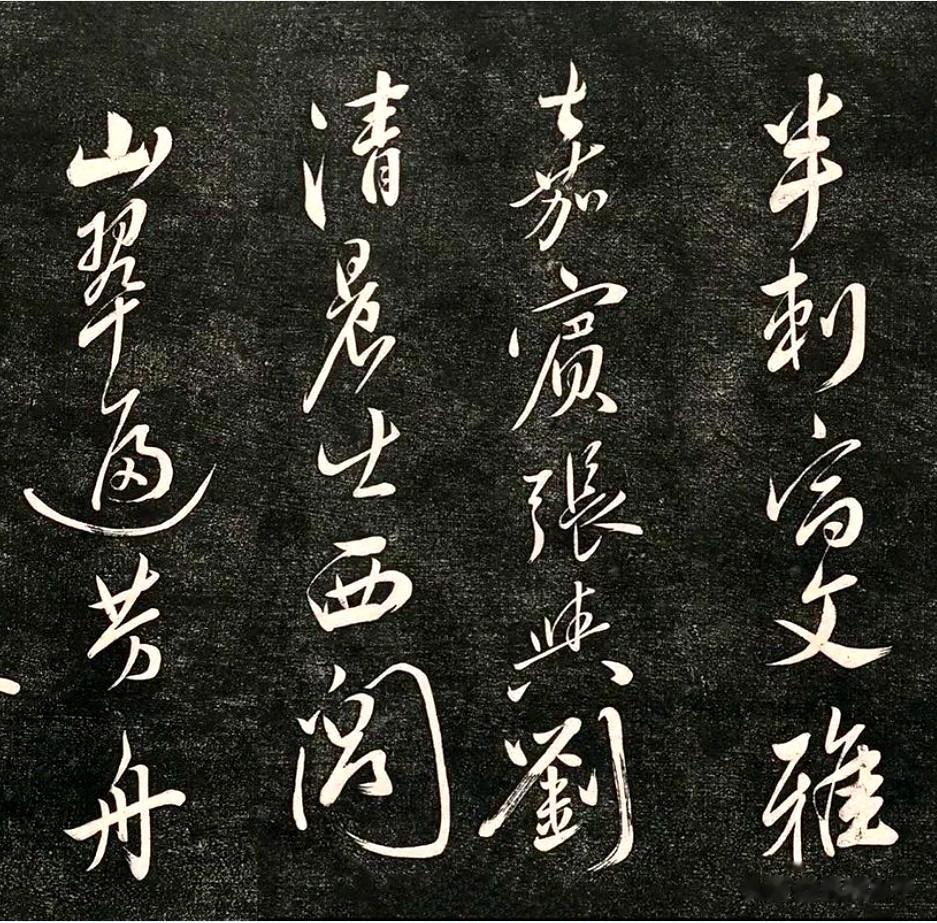 半刺富文雅
嘉賓張與劉
清晨出西閣
山翠逼芳舟